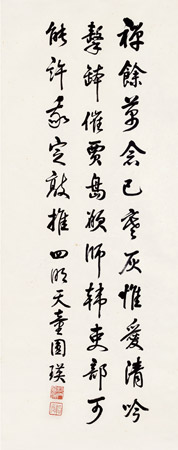 禪餘萬念已寒灰惟愛清吟
擊鉢催賈島願師韓吏部可
能許我定敲推 四明天童圓瑛